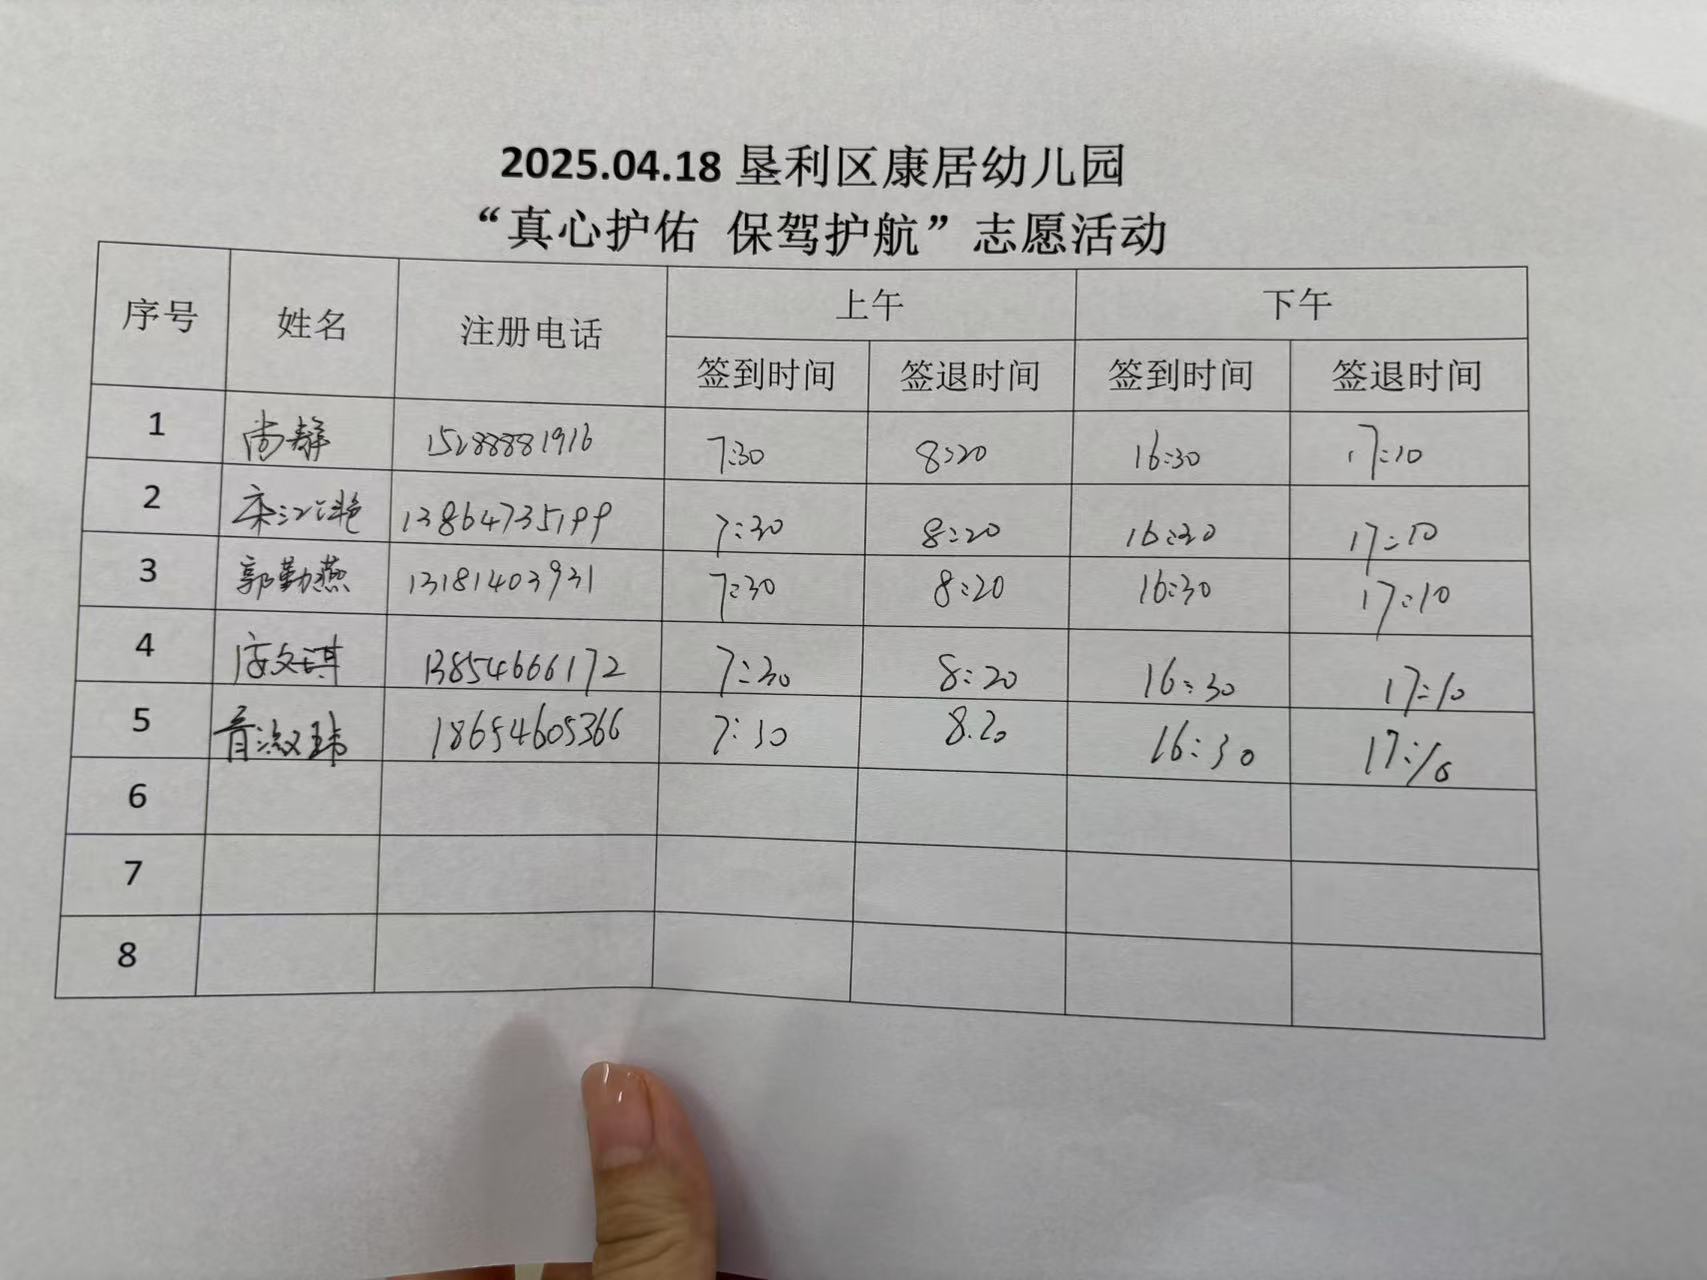 2025.04.18 垦利区康居幼儿园
“真心护佑 保驾护航”志愿活动
序号 姓名 注册电话 上午 下午
签到时间 签退时间 签到时间 签退时间
1 尚静 15288881916 7:30 8:20 16:30 17:10
2 13864735199 7:30 8:20 16:30 17:10
3 郭勤燕 13181403931 7:30 8:20 16:30 17:10
4 13854666172 7:30 8:20 16:30 17:10
5 18654605366 7:30 8.20 16:30 17:10
6
7
8